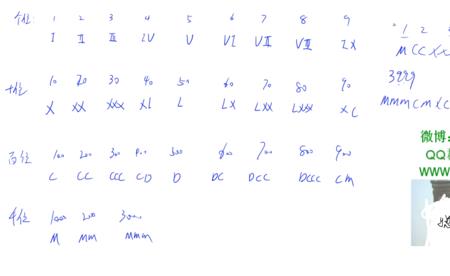 个位: 1 2 3 4 5 6 7 8 9
I II III IV V VI VII VIII IX
十位 10 20 30 40 50 60 70 80 90
X XX XXX XL L LX LXX LXXX XC
百位 100 200 300 400 500 600 700 800 900
C CC CCC CD D DC DCC DCCC CM
千位 1000 2000 3000
M MM MMM
1 2
M CC XX
3999
MMM CM XC
微博:
QQ
www